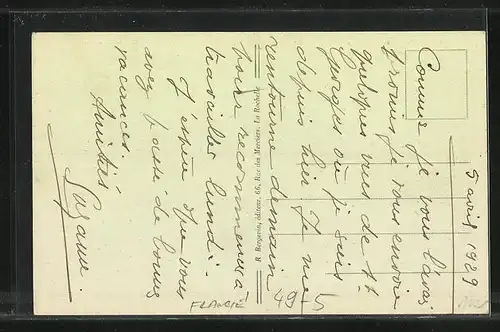 5 avril 1929
Comme je vous l'avais
promis je vous envoie
quelques vues de St
Georges où je suis
depuis hier. Je me
rentourne demain
pour recommencer à
travailler lundi.
J'espère que vous
avez passé de bonnes
vacances.
Amitiés
Suzanne.
R. Bergevin, éditeur, 66, Rue des Merciers, La Rochelle
FRANCIE
49-5